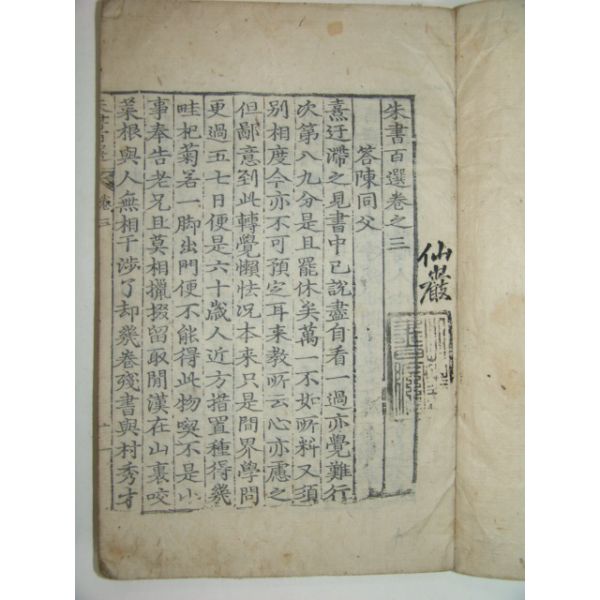 朱書百選卷之三
答陳同父
熹迂滯之見書中已說盡自看一過亦覺難行
次第八九分是且罷休矣萬一不如所料又須
別相度今亦不可預定耳来教所云心亦慮之
但鄙意到此轉覺懶怯况本来只是間界學問
更過五七日便是六十歲人近方措置種得幾
畦杞菊若一脚出門便不能得此物喫不是小
事奉告老兄且莫相攛掇留取閒漢在山裏咬
菜根與人無相干涉了却幾卷殘書與村秀才
卷三
仙叢